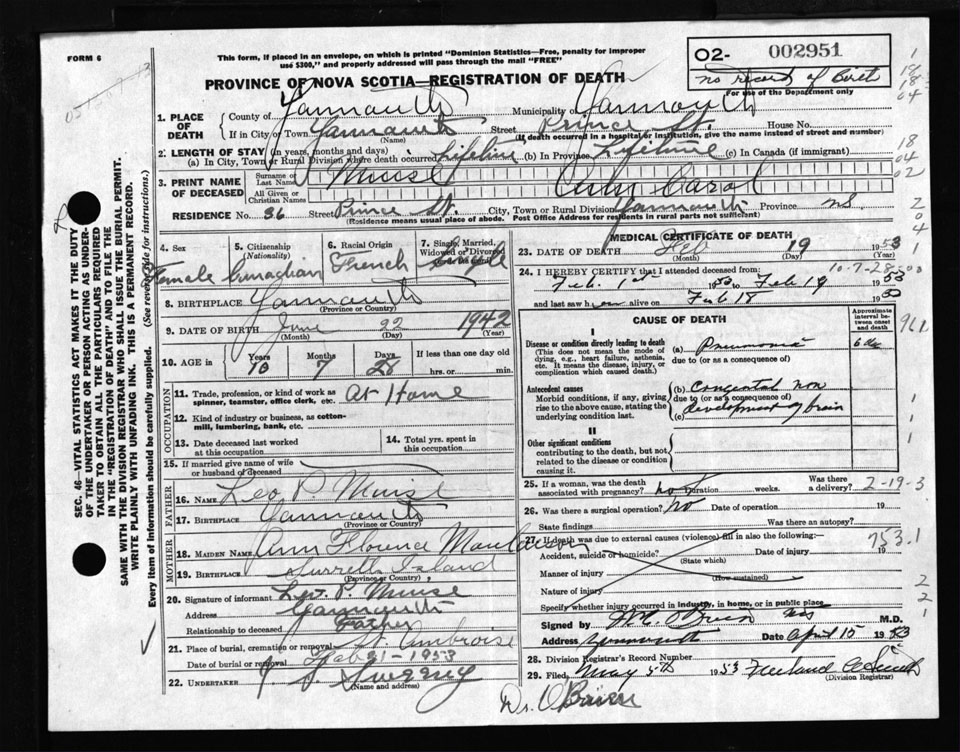 FORM 6
This form, if placed in an envelope, on which is printed "Dominion Statistics—Free, penalty for improper
use $300," and properly addressed will pass through the mail "FREE"
O2- 002951
no record of Birth
For use of the Department only
PROVINCE OF NOVA SCOTIA—REGISTRATION OF DEATH
1. PLACE OF DEATH
County of Yarmouth Municipality of Yarmouth
If in City or Town Yarmouth Street Prince St. House No.
(Name) If death occurred in a hospital or institution, give the name instead of street and number)
2. LENGTH OF STAY (in years, months and days)
(a) In City, Town or Rural Division where death occurred Lifetime (b) In Province Lifetime (c) In Canada (if immigrant)
3. PRINT NAME OF DECEASED
Surname or Last Name Muise
All Given or Christian Names Ann Carol
RESIDENCE No. 86 Street Prince St. City, Town or Rural Division Yarmouth Province N.S.
(Residence means usual place of abode. Post Office Address for residents in rural parts not sufficient)
4. Sex Female
5. Citizenship (Nationality) Canadian
6. Racial Origin French
7. Single, Married, Widowed or Divorced Single
8. BIRTHPLACE Yarmouth
(Province or Country)
9. DATE OF BIRTH June 22 1942
(Month) (Day) (Year)
10. AGE in Years 10 Months 7 Days 28 If less than one day old
hrs. or min.
OCCUPATION
11. Trade, profession, or kind of work as spinner, teamster, office clerk, etc. At Home
12. Kind of industry or business, as cotton-mill, lumbering, bank, etc.
13. Date deceased last worked at this occupation
14. Total yrs. spent in this occupation
15. If married give name of wife or husband of deceased
FATHER
16. NAME Leo P. Muise
17. BIRTHPLACE Yarmouth
(Province or Country)
MOTHER
18. MAIDEN NAME Ann Florence
19. BIRTHPLACE Surrells Island
(Province or Country)
20. Signature of informant Leo. P. Muise
Address Yarmouth
Relationship to deceased Father
21. Place of burial, cremation or removal St. Ambroise
Date of burial or removal Feb 21-1953
22. UNDERTAKER Sweeny
(Name and address)
MEDICAL CERTIFICATE OF DEATH
23. DATE OF DEATH Feb 19 1953
(Month) (Day) (Year)
24. I HEREBY CERTIFY that I attended deceased from
Feb. 1st 1953 to Feb 19 1953
and last saw h alive on Feb 18 1953
CAUSE OF DEATH
Approximate interval between onset and death
I
Disease or condition directly leading to death (a) Pneumonia 6 da
(This does not mean the mode of dying, e.g., heart failure, asthenia, etc. It means the disease, injury, or complication which caused death.)
due to (or as a consequence of)
Antecedent causes (b) Congenital non
Morbid conditions, if any, giving rise to the above cause, stating the underlying condition last.
due to (or as a consequence of)
(c) development of brain
II
Other significant conditions contributing to the death, but not related to the disease or condition causing it.
25. If a woman, was the death associated with pregnancy? no Duration weeks. Was there a delivery?
2-19-3
26. Was there a surgical operation? No Date of operation 19
State findings Was there an autopsy?
27. If death was due to external causes (violence) fill in also the following:—
Accident, suicide or homicide? Date of injury 19
(State which)
753.1
Manner of injury
(How sustained)
Nature of injury
Specify whether injury occurred in industry, in home, or in public place
Signed by O'Brien M.D.
Address Yarmouth Date April 15 1953
28. Division Registrar's Record Number
29. Filed, May 5th 1953
(Division Registrar)
Dr. O'Brien
SEC. 46—VITAL STATISTICS ACT MAKES IT THE DUTY
OF THE UNDERTAKER OR PERSON ACTING AS UNDER-
TAKER TO OBTAIN ALL THE PARTICULARS REQUIRED
IN THE "REGISTRATION OF DEATH" AND TO FILE THE
SAME WITH THE DIVISION REGISTRAR WHO SHALL ISSUE THE BURIAL PERMIT.
WRITE PLAINLY WITH UNFADING INK. THIS IS A PERMANENT RECORD.
Every item of information should be carefully supplied. (See reverse side for instructions.)